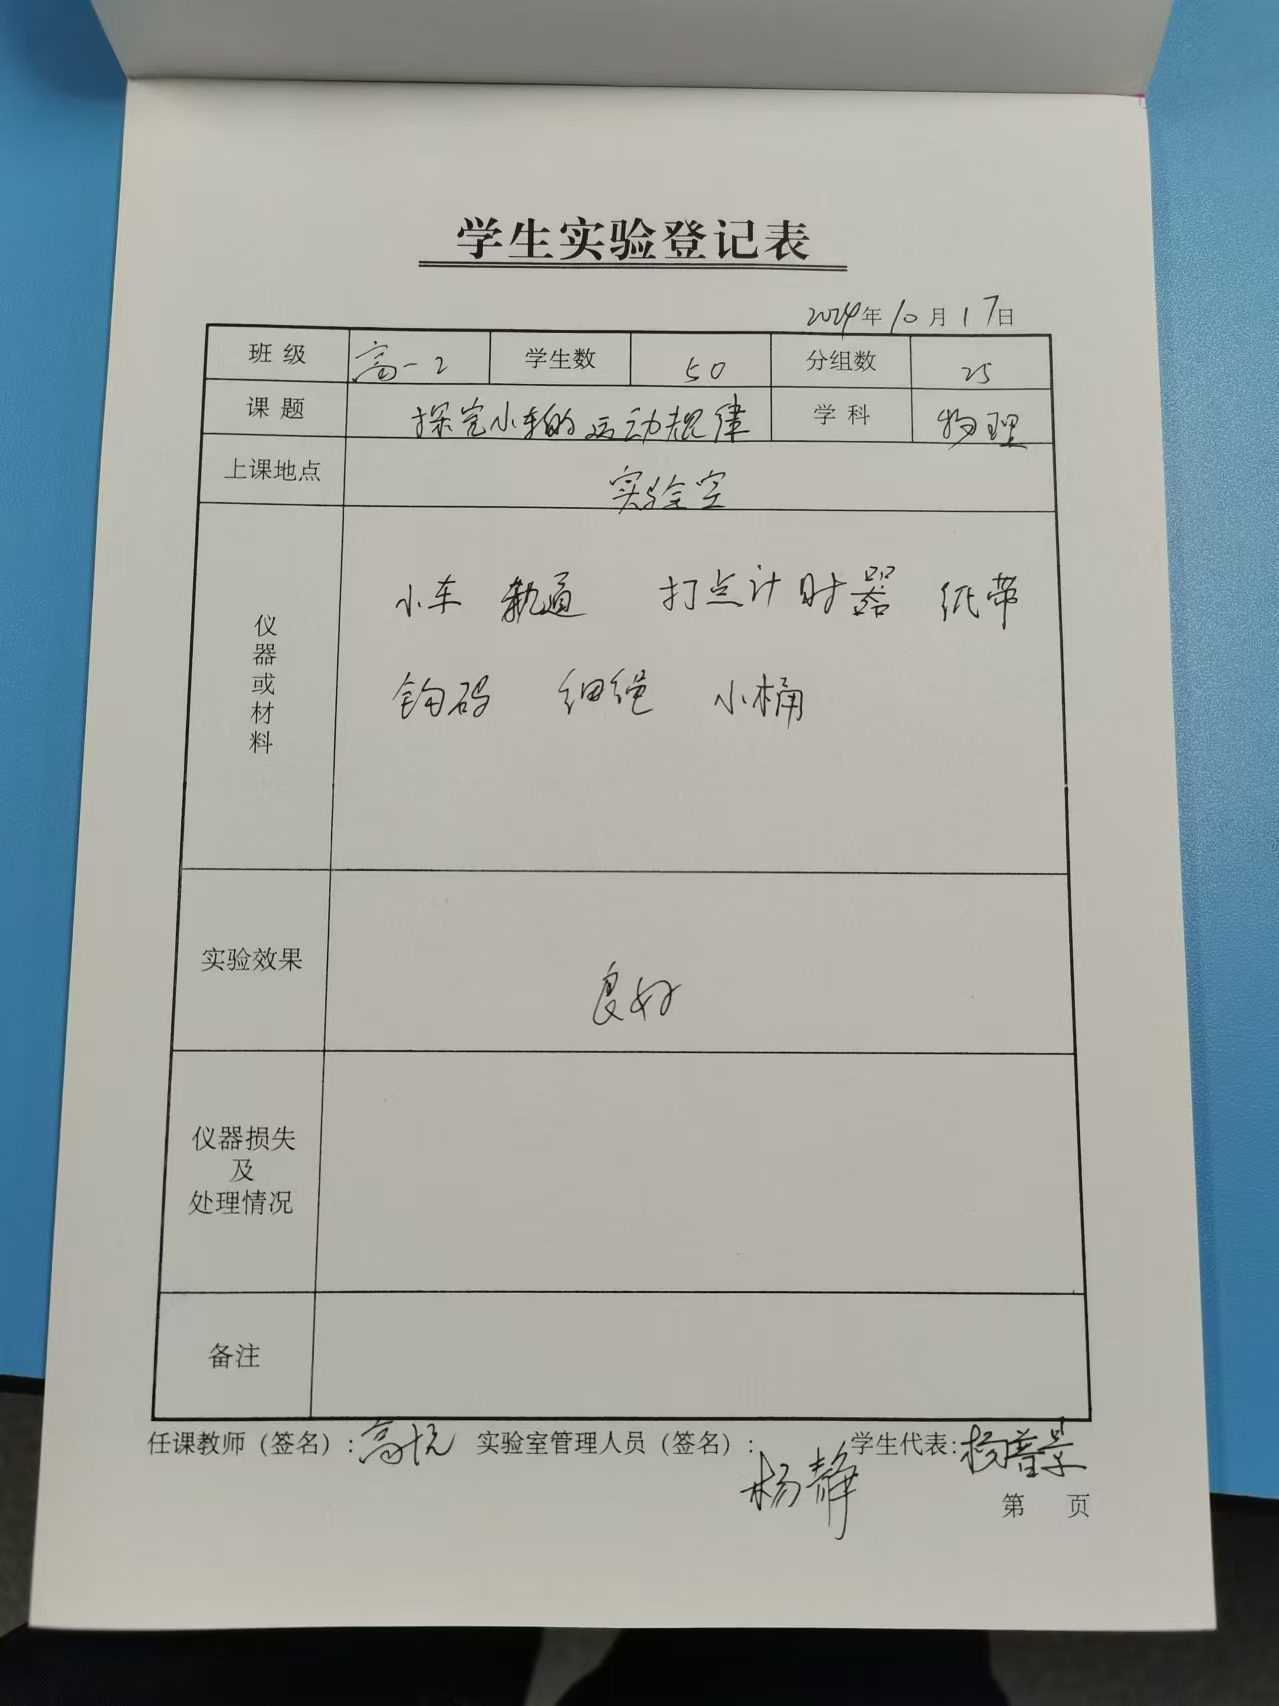 学生实验登记表
2024年10月17日
班级 高一2 学生数 50 分组数 25
课题 探究小车的运动规律 学科 物理
上课地点 实验室
仪器或材料
小车 轨道 打点计时器 纸带
钩码 细绳 小桶
实验效果 良好
仪器损失
及
处理情况
备注
任课教师（签名）: 高悦 实验室管理人员（签名）: 杨静 学生代表: 杨普景
第 页